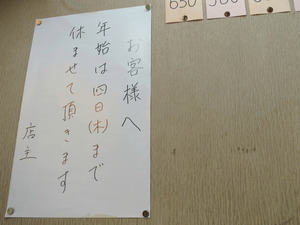 お客様へ
年始は四日(木)まで
休ませて頂きます
店主
650